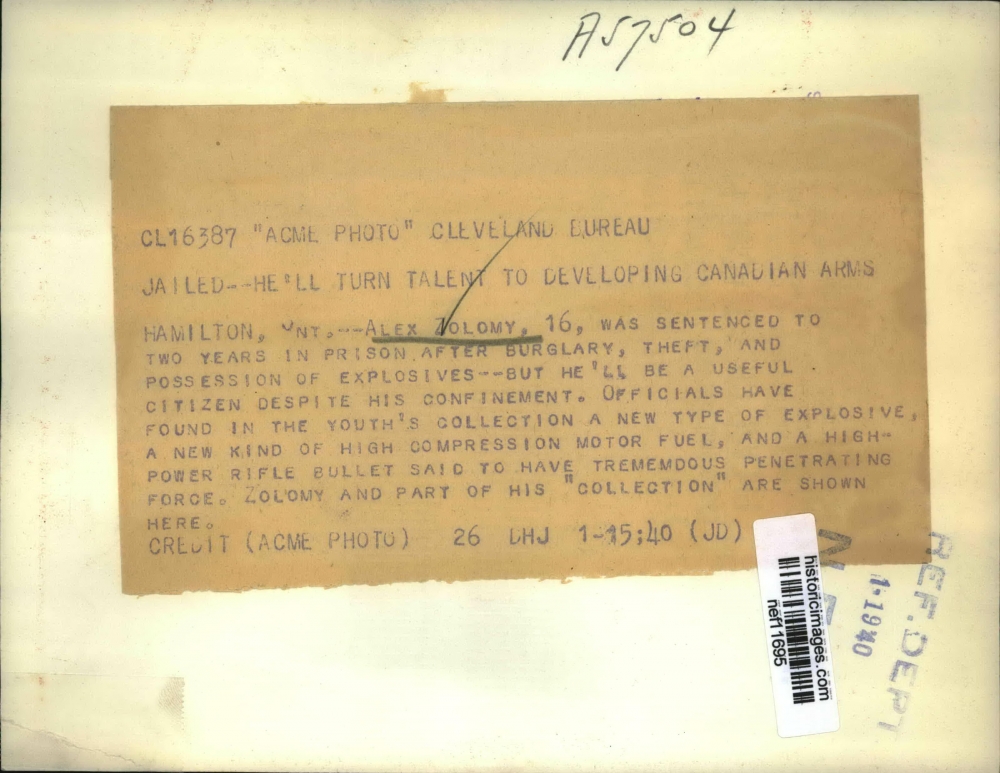 A57504
CL16387 "ACME PHOTO" CLEVELAND BUREAU
JAILED--HE'LL TURN TALENT TO DEVELOPING CANADIAN ARMS
HAMILTON, ONT.--ALEX ZOLOMY, 16, WAS SENTENCED TO
TWO YEARS IN PRISON AFTER BURGLARY, THEFT, AND
POSSESSION OF EXPLOSIVES--BUT HE'LL BE A USEFUL
CITIZEN DESPITE HIS CONFINEMENT. OFFICIALS HAVE
FOUND IN THE YOUTH'S COLLECTION A NEW TYPE OF EXPLOSIVE,
A NEW KIND OF HIGH COMPRESSION MOTOR FUEL, AND A HIGH-
POWER RIFLE BULLET SAID TO HAVE TREMEMDOUS PENETRATING
FORCE. ZOLOMY AND PART OF HIS "COLLECTION" ARE SHOWN
HERE.
CREDIT (ACME PHOTO) 26 DHJ 1-15;40 (JD)
historicimages.com
nef11695
1940
REF. DEPT